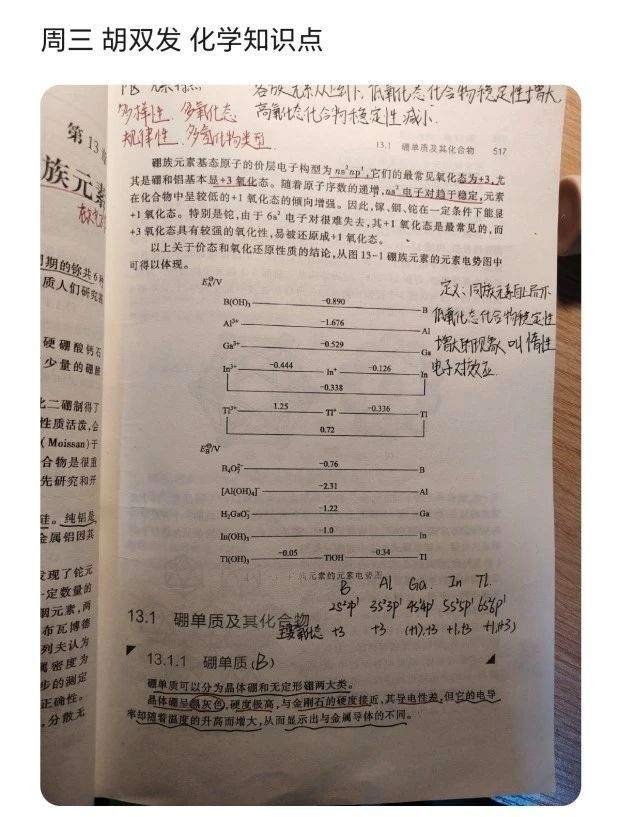 周三 胡双发 化学知识点
各族元素从上到下,低氧化态化合物稳定性增大
多样性 多氧化态 高氧化态化合物稳定性减小.
规律性. 多氢化物类型
13.1 硼单质及其化合物 517
硼族元素基态原子的价层电子构型为 ns²np¹,它们的最常见氧化态为+3,尤
其是硼和铝基本显+3 氧化态。随着原子序数的递增,ns² 电子对趋于稳定,元素
在化合物中呈较低的+1 氧化态的倾向增强。因此,镓、铟、铊在一定条件下能显
+1 氧化态。特别是铊,由于 6s² 电子对很难失去,其+1 氧化态是最常见的,而
+3 氧化态具有较强的氧化性,易被还原成+1 氧化态。
以上关于价态和氧化还原性质的结论,从图 13-1 硼族元素的元素电势图中
可得以体现。
定义:同族元素自上而下
低氧化态化合物稳定性
增大的现象 叫惰性
电子对效应
E_A^⊖/V
B(OH)₃ -0.890 B
Al³⁺ -1.676 Al
Ga³⁺ -0.529 Ga
In³⁺ -0.444 In⁺ -0.126 In
-0.338
Tl³⁺ 1.25 Tl⁺ -0.336 Tl
0.72
E_B^⊖/V
B₄O₇²⁻ -0.76 B
[Al(OH)₄]⁻ -2.31 Al
H₂GaO₃⁻ -1.22 Ga
In(OH)₃ -1.0 In
Tl(OH)₃ -0.05 TlOH -0.34 Tl
族元素的元素电势图
B Al Ga In Tl.
2s²2p¹ 3s²3p¹ 4s²4p¹ 5s²5p¹ 6s²6p¹
13.1 硼单质及其化合物
主要氧化态 +3 +3 (+1),+3 +1,+3 +1,(+3)
13.1.1 硼单质(B)
硼单质可以分为晶体硼和无定形硼两大类。
晶体硼呈黑灰色,硬度极高,与金刚石的硬度接近,其导电性差,但它的电导
率却随着温度的升高而增大,从而显示出与金属导体的不同。
第 13
族元素
期的你共 6 种
质人们研究
硬硼酸钙石
少量的硼酸
二硼制得了
性质活泼,会
(Moissan)于
合物是很重
先研究和开
硅。纯铝是
金属铝因其
发现了铊元
一定数量的
铟元素,两
布瓦博德
列夫认为
属密度为
步的测定
正确性。
,分散无